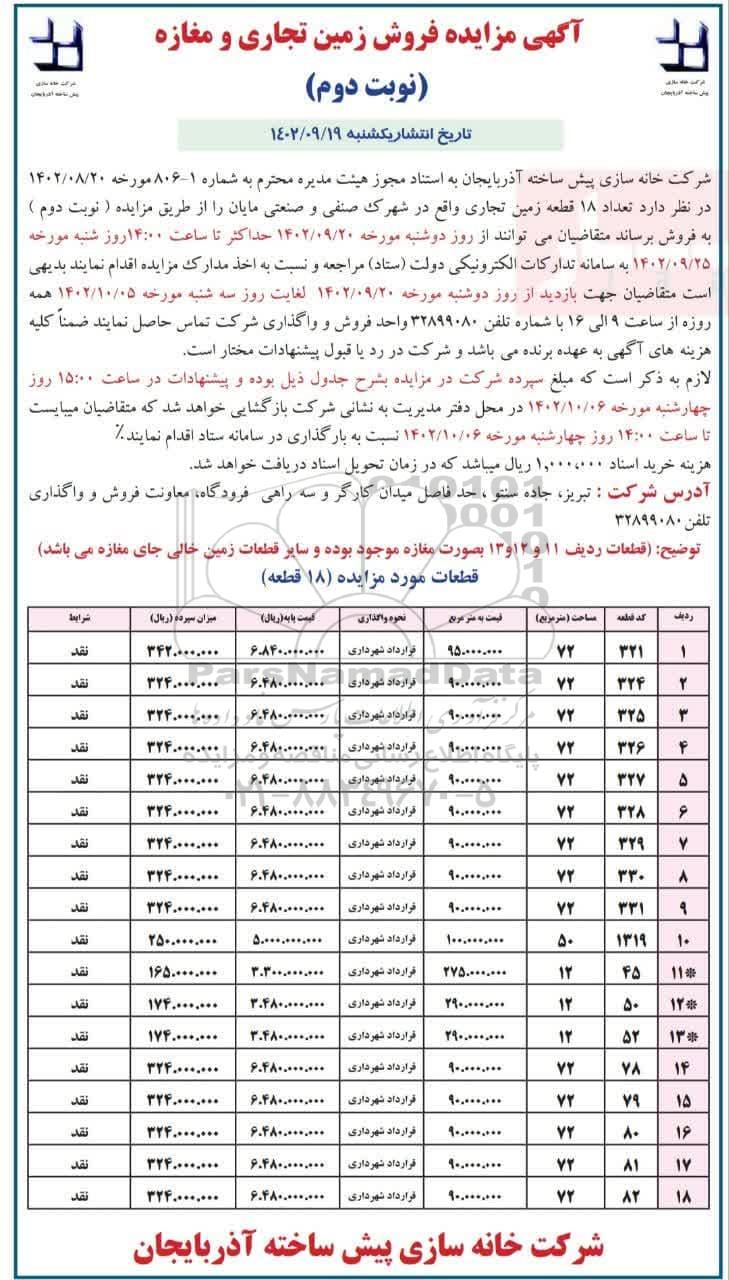 آگهی مزایده فروش زمین تجاری و مغازه
شرکت خانه سازی
پیش ساخته آذربایجان
شرکت خانه سازی
پیش ساخته آذربایجان
(نوبت دوم)
تاریخ انتشاریکشنبه ۱۴۰۲/۰۹/۱۹
شرکت خانه سازی پیش ساخته آذربایجان به استناد مجوز هیئت مدیره محترم به شماره ۱-۸۰۶ مورخه ۱۴۰۲/۰۸/۲۰
در نظر دارد تعداد ۱۸ قطعه زمین تجاری واقع در شهرک صنفی و صنعتی مایان را از طریق مزایده ( نوبت دوم )
به فروش برساند متقاضیان می توانند از روز دوشنبه مورخه ۱۴۰۲/۰۹/۲۰ حداکثر تا ساعت ۱۴:۰۰روز شنبه مورخه
۱۴۰۲/۰۹/۲۵ به سامانه تدارکات الکترونیکی دولت (ستاد) مراجعه و نسبت به اخذ مدارک مزایده اقدام نمایند بدیهی
است متقاضیان جهت بازدید از روز دوشنبه مورخه ۱۴۰۲/۰۹/۲۰ لغایت روز سه شنبه مورخه ۱۴۰۲/۱۰/۰۵ همه
روزه از ساعت ۹ الی ۱۶ با شماره تلفن ۳۲۸۹۹۰۸۰ واحد فروش و واگذاری شرکت تماس حاصل نمایند ضمناً کلیه
هزینه های آگهی به عهده برنده می باشد و شرکت در رد یا قبول پیشنهادات مختار است.
لازم به ذکر است که مبلغ سپرده شرکت در مزایده بشرح جدول ذیل بوده و پیشنهادات در ساعت ۱۵:۰۰ روز
چهارشنبه مورخه ۱۴۰۲/۱۰/۰۶ در محل دفتر مدیریت به نشانی شرکت بازگشایی خواهد شد که متقاضیان میبایست
تا ساعت ۱۴:۰۰ روز چهارشنبه مورخه ۱۴۰۲/۱۰/۰۶ نسبت به بارگذاری در سامانه ستاد اقدام نمایند٪
هزینه خرید اسناد ۱,۰۰۰,۰۰۰ ریال میباشد که در زمان تحویل اسناد دریافت خواهد شد.
آدرس شرکت : تبریز، جاده سنتو ، حد فاصل میدان کارگر و سه راهی فرودگاه، معاونت فروش و واگذاری
تلفن ۳۲۸۹۹۰۸۰
توضیح: (قطعات ردیف ۱۱ و ۱۲و۱۳ بصورت مغازه موجود بوده و سایر قطعات زمین خالی جای مغازه می باشد)
قطعات مورد مزایده (۱۸ قطعه)
ردیف کد قطعه مساحت (مترمربع) قیمت به متر مربع نحوه واگذاری قیمت پایه(ریال) میزان سپرده (ریال) شرایط
۱ ۳۲۱ ۷۲ ۹۵.۰۰۰.۰۰۰ قرارداد شهرداری ۶.۸۴۰.۰۰۰.۰۰۰ ۳۴۲.۰۰۰.۰۰۰ نقد
۲ ۳۲۴ ۷۲ ۹۰.۰۰۰.۰۰۰ قرارداد شهرداری ۶.۴۸۰.۰۰۰.۰۰۰ ۳۲۴.۰۰۰.۰۰۰ نقد
۳ ۳۲۵ ۷۲ ۹۰.۰۰۰.۰۰۰ قرارداد شهرداری ۶.۴۸۰.۰۰۰.۰۰۰ ۳۲۴.۰۰۰.۰۰۰ نقد
۴ ۳۲۶ ۷۲ ۹۰.۰۰۰.۰۰۰ قرارداد شهرداری ۶.۴۸۰.۰۰۰.۰۰۰ ۳۲۴.۰۰۰.۰۰۰ نقد
۵ ۳۲۷ ۷۲ ۹۰.۰۰۰.۰۰۰ قرارداد شهرداری ۶.۴۸۰.۰۰۰.۰۰۰ ۳۲۴.۰۰۰.۰۰۰ نقد
۶ ۳۲۸ ۷۲ ۹۰.۰۰۰.۰۰۰ قرارداد شهرداری ۶.۴۸۰.۰۰۰.۰۰۰ ۳۲۴.۰۰۰.۰۰۰ نقد
۷ ۳۲۹ ۷۲ ۹۰.۰۰۰.۰۰۰ قرارداد شهرداری ۶.۴۸۰.۰۰۰.۰۰۰ ۳۲۴.۰۰۰.۰۰۰ نقد
۸ ۳۳۰ ۷۲ ۹۰.۰۰۰.۰۰۰ قرارداد شهرداری ۶.۴۸۰.۰۰۰.۰۰۰ ۳۲۴.۰۰۰.۰۰۰ نقد
۹ ۳۳۱ ۷۲ ۹۰.۰۰۰.۰۰۰ قرارداد شهرداری ۶.۴۸۰.۰۰۰.۰۰۰ ۳۲۴.۰۰۰.۰۰۰ نقد
۱۰ ۱۳۱۹ ۵۰ ۱۰۰.۰۰۰.۰۰۰ قرارداد شهرداری ۵.۰۰۰.۰۰۰.۰۰۰ ۲۵۰.۰۰۰.۰۰۰ نقد
*۱۱ ۴۵ ۱۲ ۲۷۵.۰۰۰.۰۰۰ قرارداد شهرداری ۳.۳۰۰.۰۰۰.۰۰۰ ۱۶۵.۰۰۰.۰۰۰ نقد
*۱۲ ۵۰ ۱۲ ۲۹۰.۰۰۰.۰۰۰ قرارداد شهرداری ۳.۴۸۰.۰۰۰.۰۰۰ ۱۷۴.۰۰۰.۰۰۰ نقد
*۱۳ ۵۲ ۱۲ ۲۹۰.۰۰۰.۰۰۰ قرارداد شهرداری ۳.۴۸۰.۰۰۰.۰۰۰ ۱۷۴.۰۰۰.۰۰۰ نقد
۱۴ ۷۸ ۷۲ ۹۰.۰۰۰.۰۰۰ قرارداد شهرداری ۶.۴۸۰.۰۰۰.۰۰۰ ۳۲۴.۰۰۰.۰۰۰ نقد
۱۵ ۷۹ ۷۲ ۹۰.۰۰۰.۰۰۰ قرارداد شهرداری ۶.۴۸۰.۰۰۰.۰۰۰ ۳۲۴.۰۰۰.۰۰۰ نقد
۱۶ ۸۰ ۷۲ ۹۰.۰۰۰.۰۰۰ قرارداد شهرداری ۶.۴۸۰.۰۰۰.۰۰۰ ۳۲۴.۰۰۰.۰۰۰ نقد
۱۷ ۸۱ ۷۲ ۹۰.۰۰۰.۰۰۰ قرارداد شهرداری ۶.۴۸۰.۰۰۰.۰۰۰ ۳۲۴.۰۰۰.۰۰۰ نقد
۱۸ ۸۲ ۷۲ ۹۰.۰۰۰.۰۰۰ قرارداد شهرداری ۶.۴۸۰.۰۰۰.۰۰۰ ۳۲۴.۰۰۰.۰۰۰ نقد
ParsNamadData
پایگاه اطلاع رسانی مناقصه و مزایده
۰۲۱-۸۸۳۴۹۶۷۰-۵
شرکت خانه سازی پیش ساخته آذربایجان